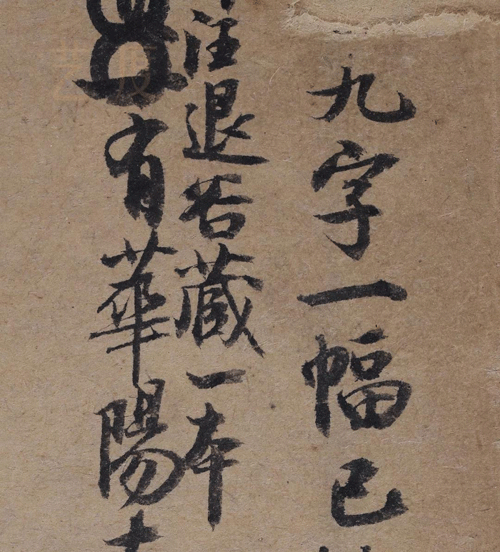 九字一幅已
注退谷藏一本
有華陽